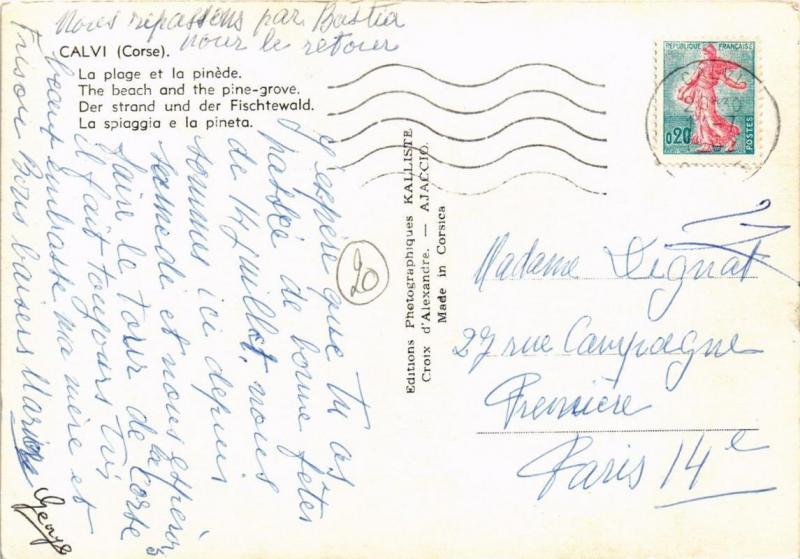 Nous repassons par Bastia
pour le retour
CALVI (Corse).
La plage et la pinède.
The beach and the pine-grove.
Der strand und der Fischtewald.
La spiaggia e la pineta.
J'espère que tu as
passée de bonne fêtes
de 14 juillet, nous
sommes ici depuis
samedi et nous espérons
faire le tour de la Corse
il fait toujours très
beau embrasse ma mère et
Bons baisers
Georges
20
Editions Photographiques KALLISTE
Croix d'Alexandre. — AJACCIO.
Made in Corsica
REPUBLIQUE FRANÇAISE
0,20
POSTES
Madame Lignat
27 rue Campagne
Première
Paris 14e